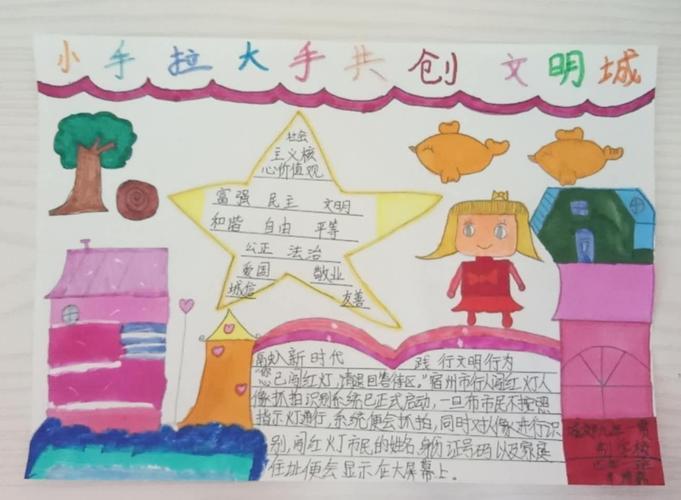 小手拉大手共创文明城
社会
主义核
心价值观
富强 民主 文明
和谐 自由 平等
公正 法治
爱国 敬业
诚信 友善
融入新时代 践行文明行为
您已闯红灯,请退回等待区。"宿州市行人闯红灯人
像抓拍识别系统已正式启动,一旦市民不按照
指示灯通行,系统便会抓拍,同时对人像进行识
别,闯红灯市民的姓名,身份证号码以及家庭
住址便会显示在大屏幕上。